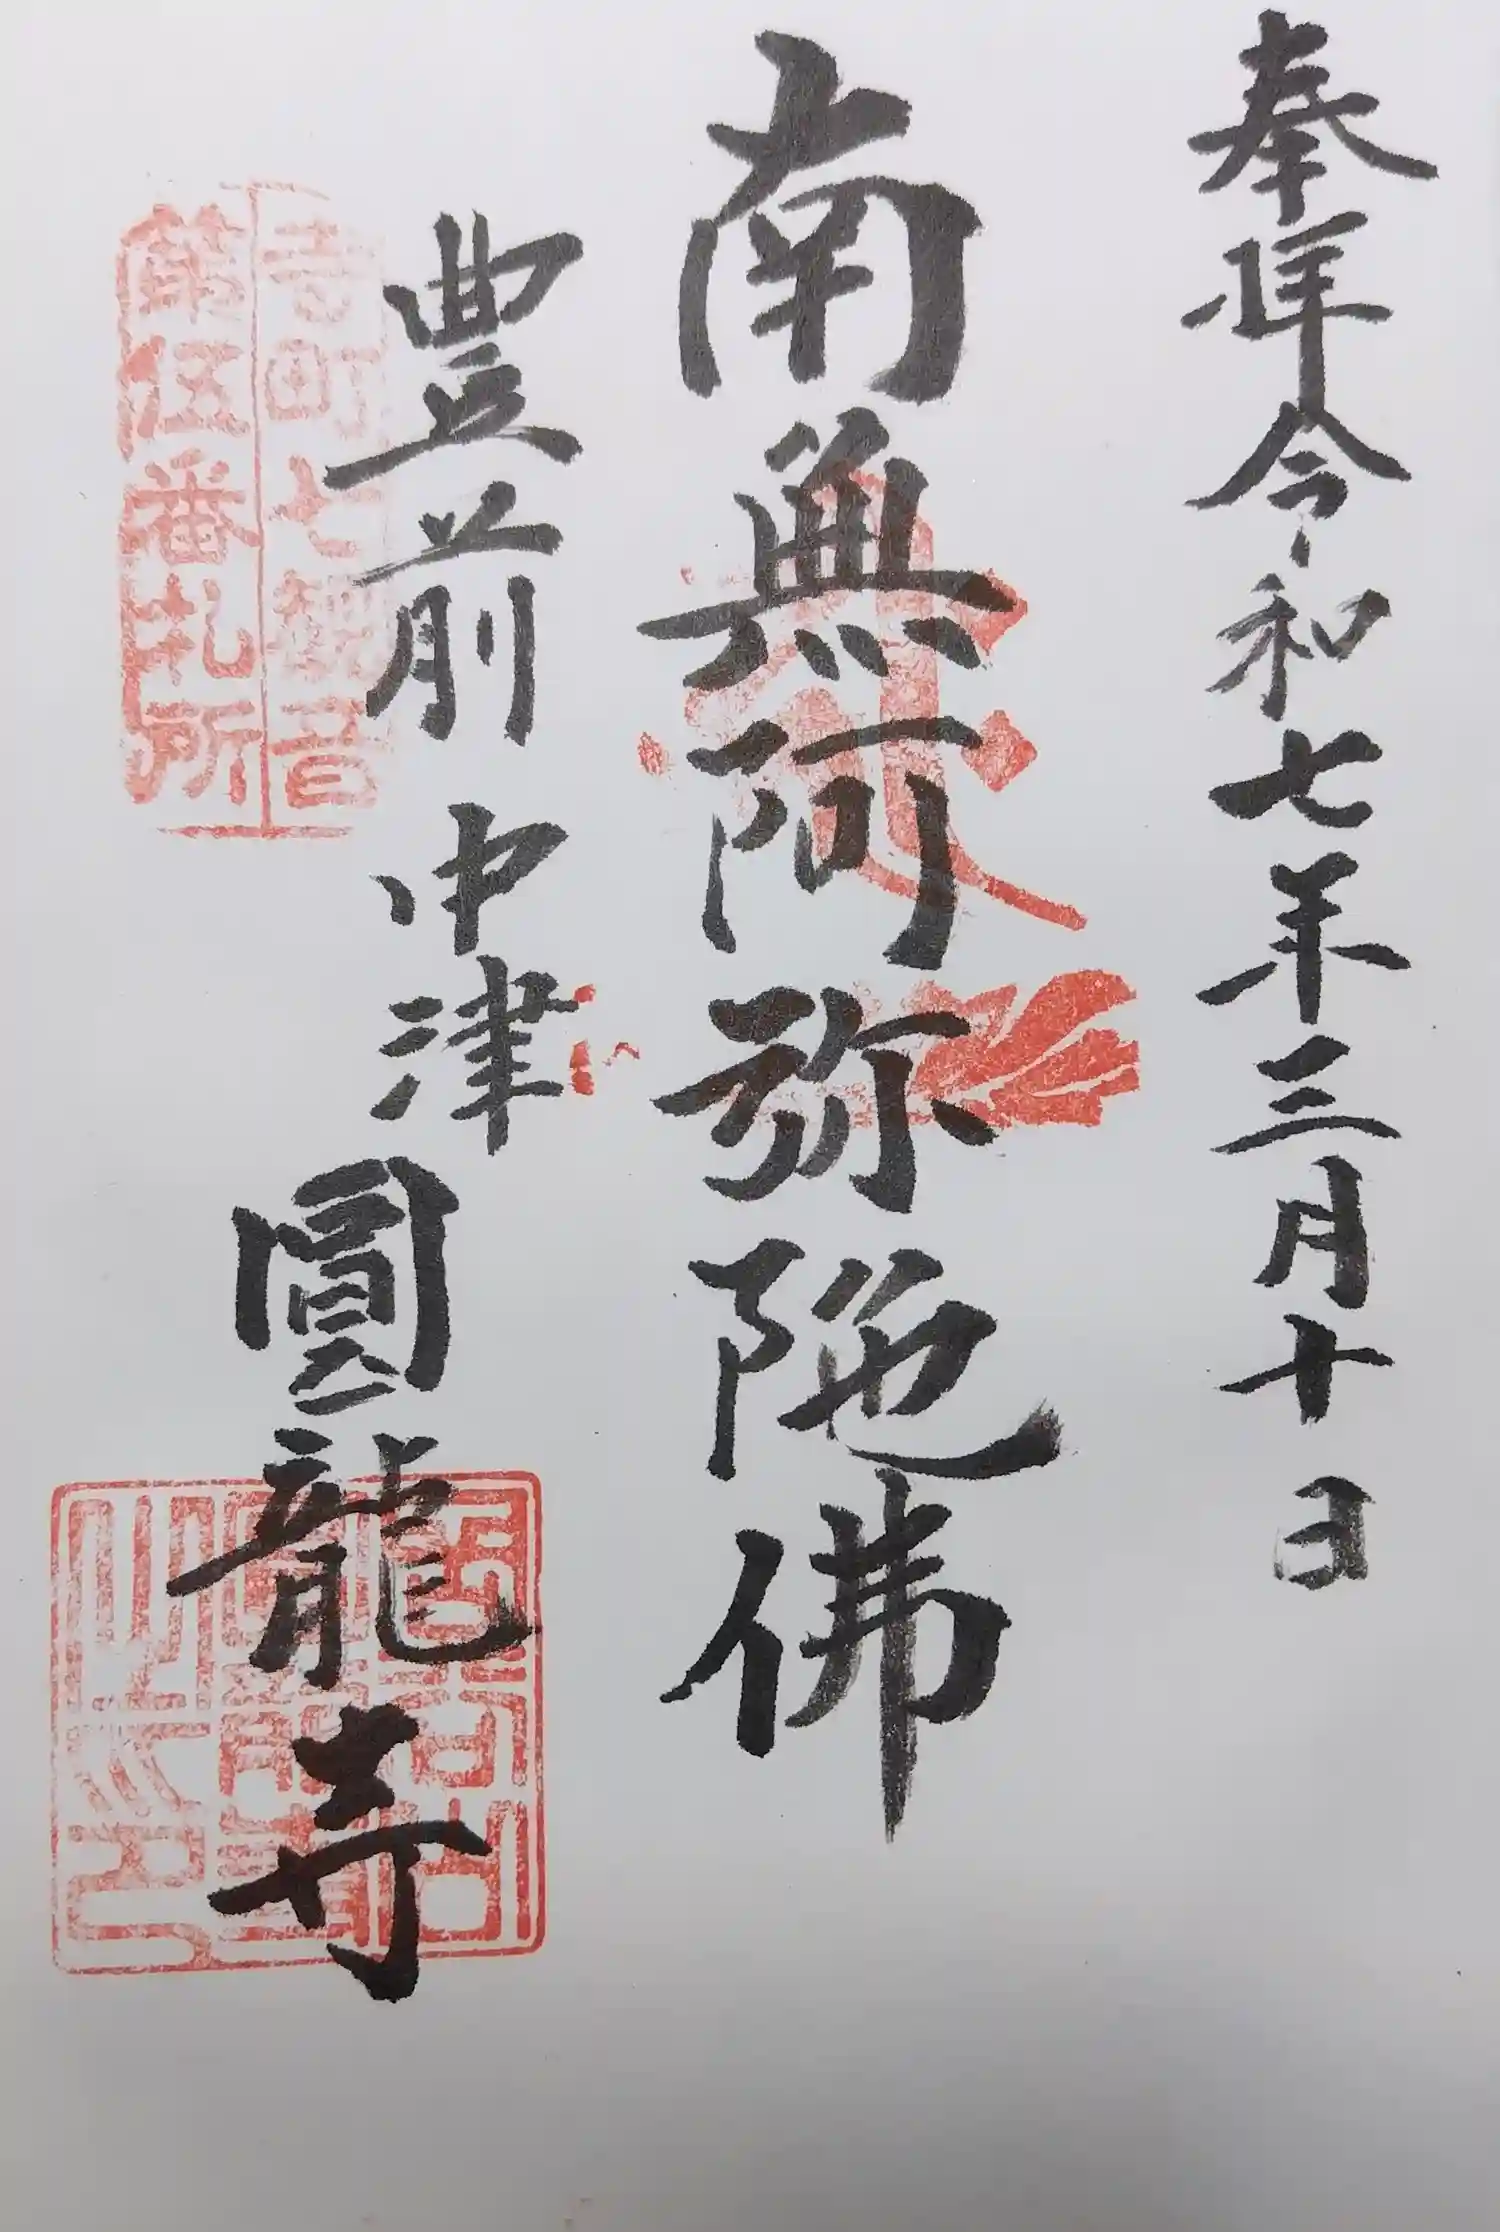 奉拝令和七年三月十日
南無阿弥陀佛
豊前中津
圓龍寺
寺町七観音
第伍番札所